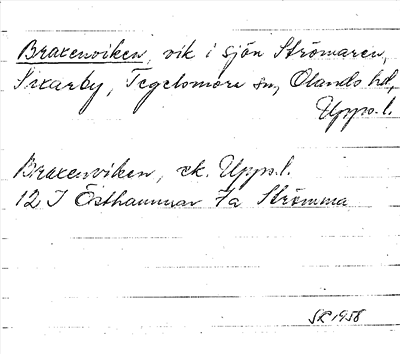 Braxenviken, vik i sjön Strömaren,
Sixarby, Tegelsmora sn, Olands hd,
Upps. l.
Braxenviken, ek. Upps. l.
12 I Östhammar 7a Strömma
SK 1958